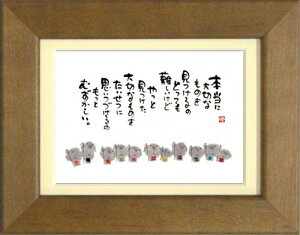 本当に
大切な
ものを
見つけるのは
とっても
難しいけど
やっと
見つけた
大切なものを
たいせつに
思いつづけるのは
もっと
むずかしい。